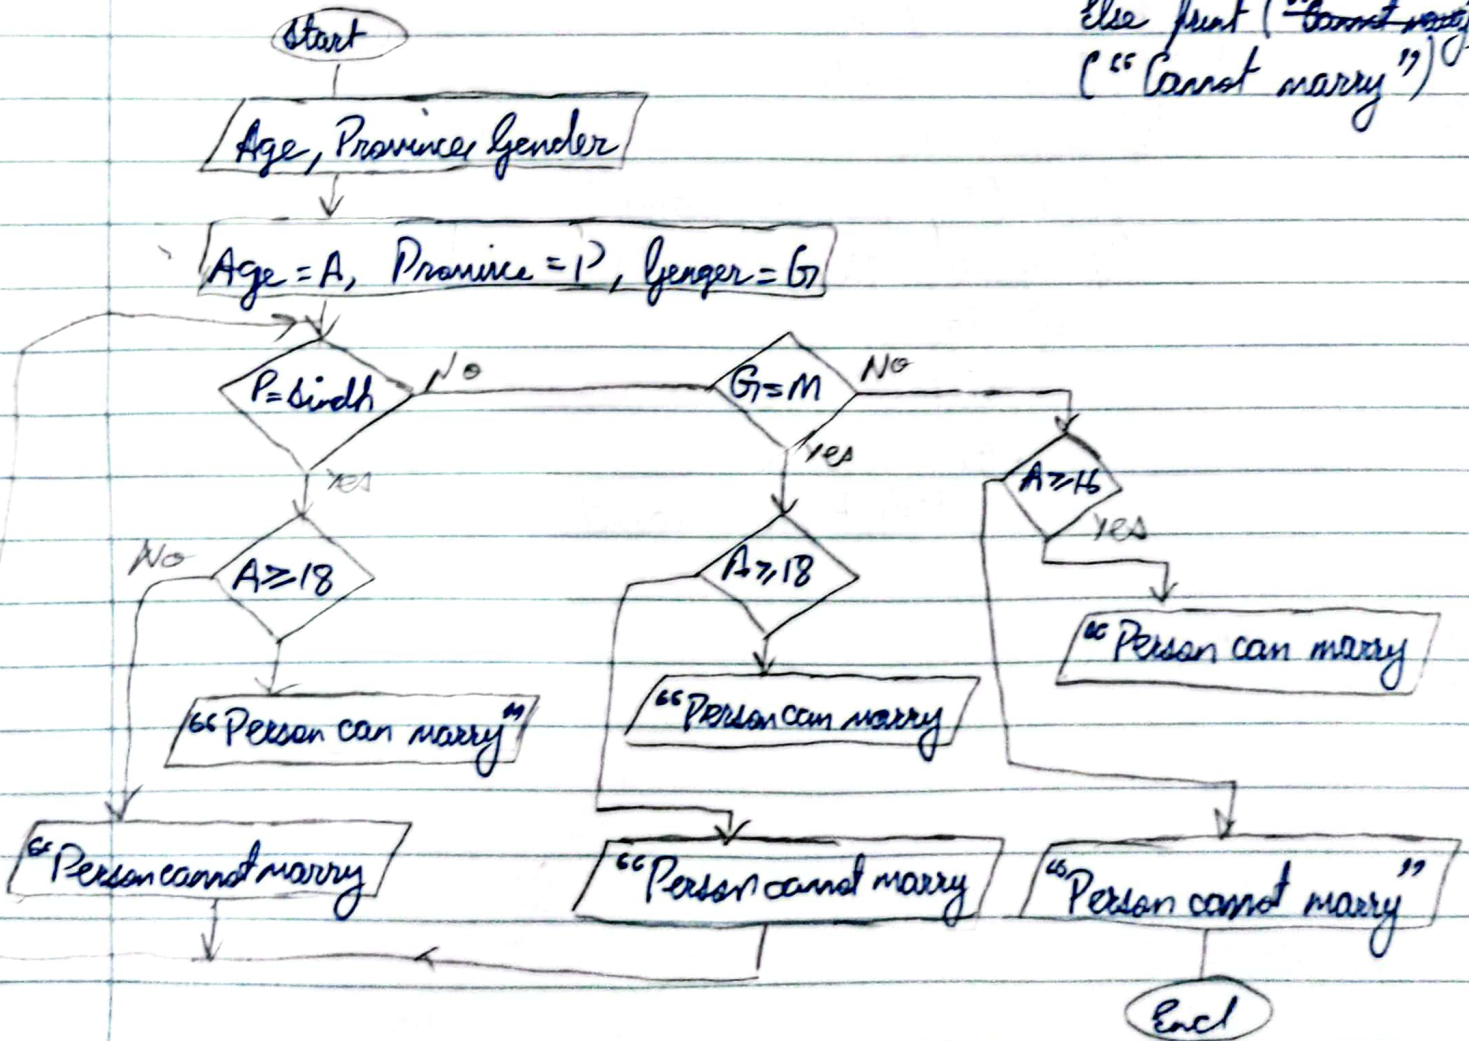 Else print ("Cannot marry
("Cannot marry")
Start
Age, Province, Gender
Age = A, Province = P, Genger = G
P = Sindh
No
G = M
No
Yes
Yes
A ≥ 16
Yes
No
A ≥ 18
A ≥ 18
"Person can marry
"Person can marry"
"Person can marry
"Person cannot marry
"Person cannot marry
"Person cannot marry"
End